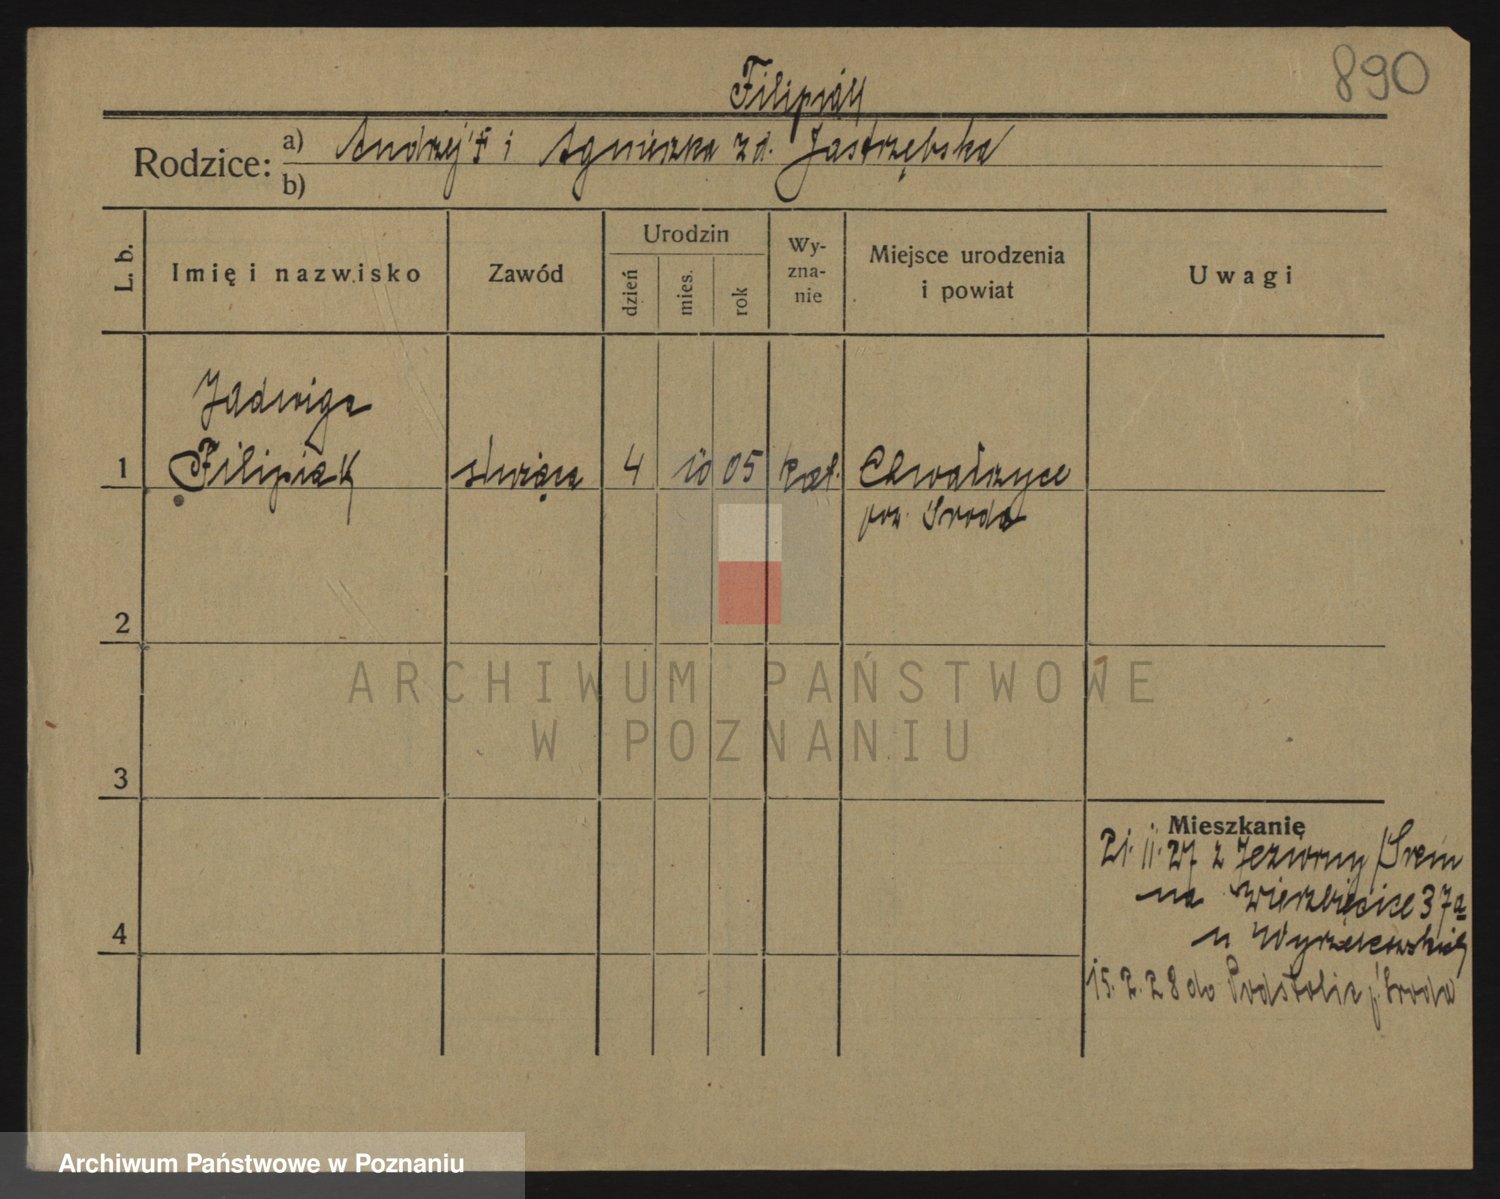 890
Filipiak
Rodzice: a) Andrzej F i Agnieszka z d. Jastrzębska
b)
L. b.
Imię i nazwisko
Zawód
Urodzin
dzień
mies.
rok
Wy-
zna-
nie
Miejsce urodzenia
i powiat
Uwagi
Jadwiga
1 Filipiak służąca 4 10 05 kat. Chwałszyce
pow. Środa
2
3
4
Mieszkanie
21. 11. 27 z Jeziorny /Śrem
na Wierzbięcice 37a
u
15. 2. 28 do Podstolic p. Środa
ARCHIWUM PAŃSTWOWE
W POZNANIU
Archiwum Państwowe w Poznaniu